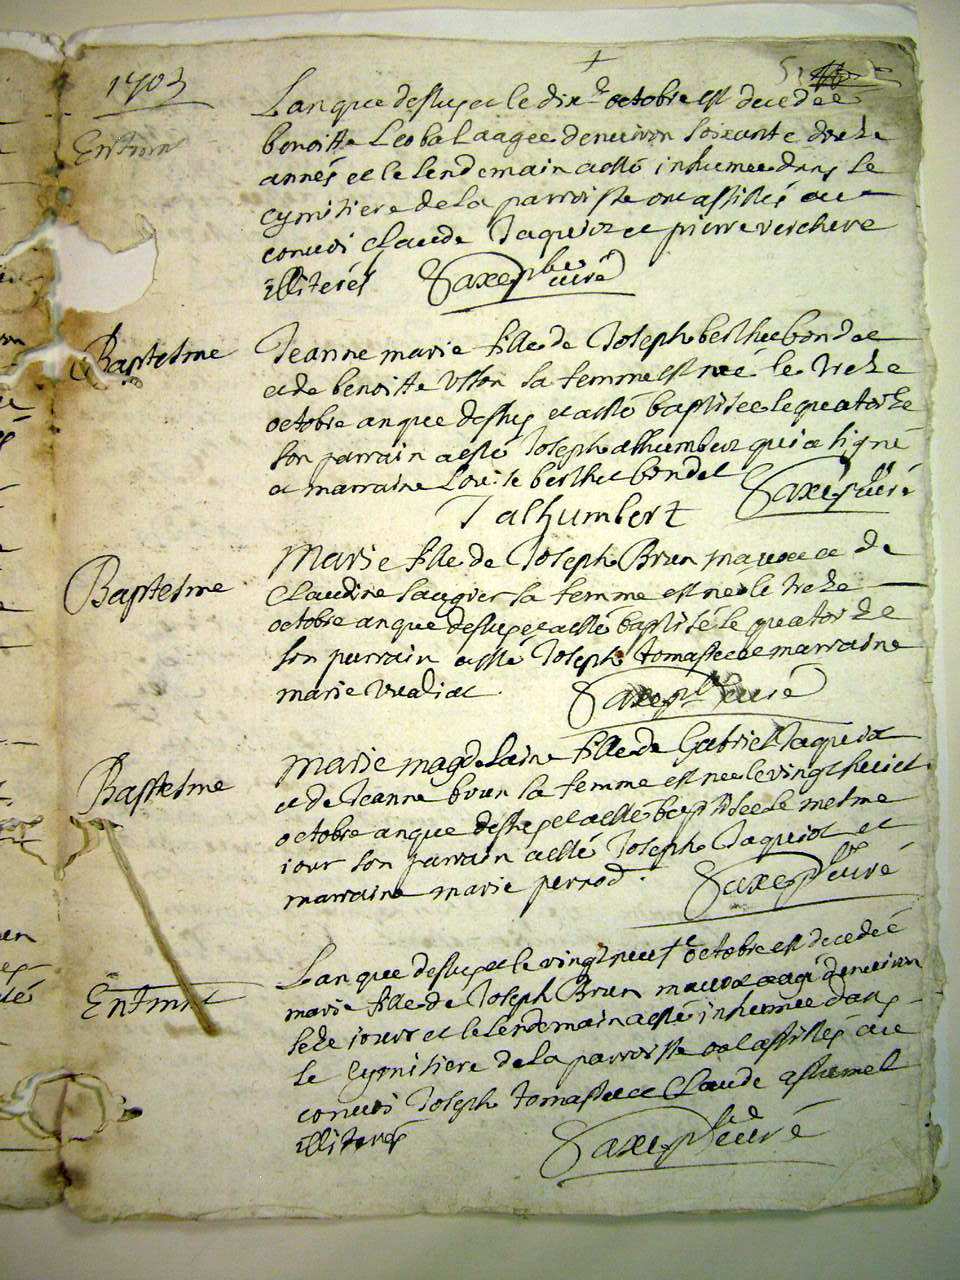 1703
Entmnt
L'an que dessus et le dixe octobre est decedée
benoitte Leobal aagée denviron soixante douze
annés et le lendemain a esté inhumée dans le
cymitiere de la parroisse ont assistés au
convoi Claude Jaquiot et pierre verchere
illiterés Saxe pbre curé
Baptesme
Jeanne marie fille de Joseph berthet bondet
et de benoitte Usson sa femme est née le treze
octobre an que dessus et a esté baptisée le quatorze
son parrain a esté Joseph alhumbert qui a signé
et marraine Louise berthet bondet Saxe pbre curé
J alhumbert
Baptesme
Marie fille de Joseph Brun et de
Claudine saugier sa femme est née le treze
octobre an que dessus et a esté baptisé le quatorze
son parrain a esté Joseph tomasset et marraine
marie Saxe pbre curé
Baptesme
Marie magdelaine fille de Gabriel Jaquiot
et de Jeanne brun sa femme est née le vingt huict
octobre an que dessus et a esté baptisée le mesme
jour son parrain a esté Joseph Jaquiot et
marraine marie pernod. Saxe pbre curé
Entmnt
L'an que dessus et le vingt neufe octobre est decedée
marie fille de Joseph Brun aagé denviron
seze jours et le lendemain a esté inhumée dans
le Cymitiere de la parroisse ont assistés au
convoi Joseph tomasset et Claude
illiterés Saxe pbre curé